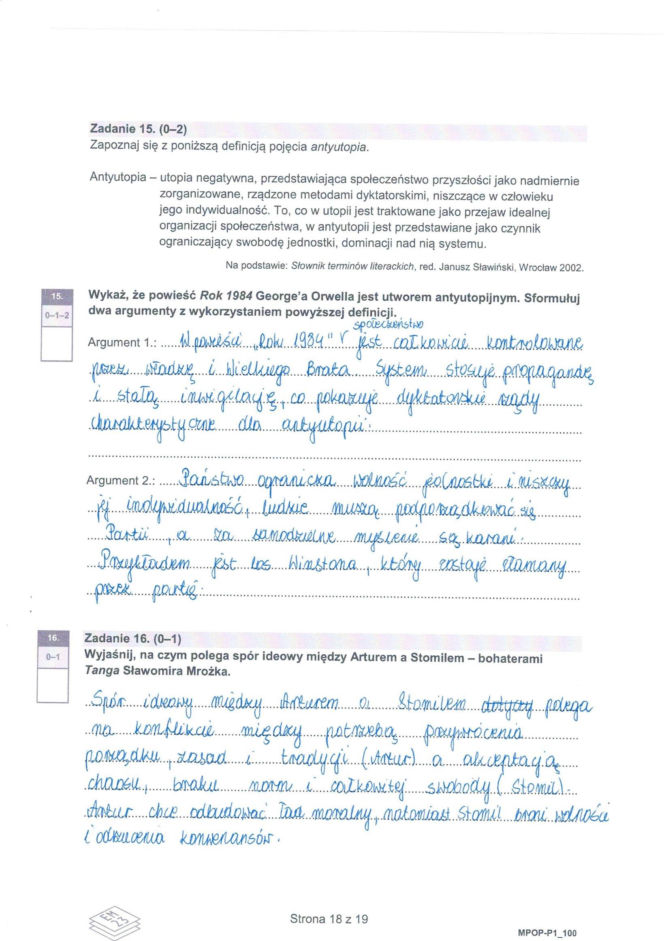 Zadanie 15. (0–2)
Zapoznaj się z poniższą definicją pojęcia antyutopia.
Antyutopia – utopia negatywna, przedstawiająca społeczeństwo przyszłości jako nadmiernie
zorganizowane, rządzone metodami dyktatorskimi, niszczące w człowieku
jego indywidualność. To, co w utopii jest traktowane jako przejaw idealnej
organizacji społeczeństwa, w antyutopii jest przedstawiane jako czynnik
ograniczający swobodę jednostki, dominacji nad nią systemu.
Na podstawie: Słownik terminów literackich, red. Janusz Sławiński, Wrocław 2002.
15.
0–1–2
Wykaż, że powieść Rok 1984 George'a Orwella jest utworem antyutopijnym. Sformułuj
dwa argumenty z wykorzystaniem powyższej definicji.
społeczeństwo
Argument 1.: W powieści „Rok 1984" V jest całkowicie kontrolowane
przez władzę i Wielkiego Brata. System stosuje propagandę
i stałą inwigilację, co pokazuje dyktatorskie rządy
charakterystyczne dla antyutopii.
Argument 2.: Państwo ogranicza wolność jednostki i niszczy
jej indywidualność, ludzie muszą podporządkować się
Partii, a za samodzielne myślenie są karani.
Przykładem jest los Winstona, który zostaje złamany
przez partię.
16.
0–1
Zadanie 16. (0–1)
Wyjaśnij, na czym polega spór ideowy między Arturem a Stomilem – bohaterami
Tanga Sławomira Mrożka.
Spór ideowy między Arturem a Stomilem dotyczy polega
na konflikcie między potrzebą przywrócenia
porządku, zasad i tradycji (Artur) a akceptacją
chaosu, braku norm i całkowitej swobody (Stomil).
Artur chce odbudować ład moralny, natomiast Stomil broni wolności
i odrzucenia konwenansów.
Strona 18 z 19
MPOP-P1_100